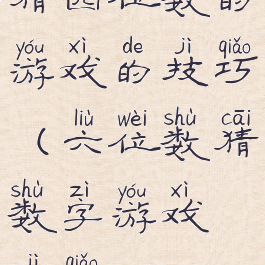 猜四位数的
yóu xì de jì qiǎo
游戏的技巧
liù wèi shù cāi
（六位数猜
shù zì yóu xì
数字游戏
jì qiǎo